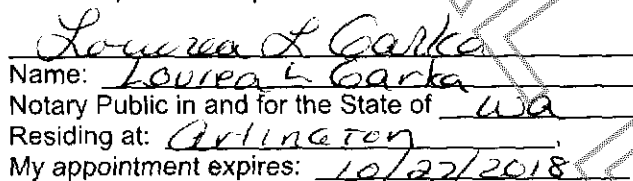 Lourea L Garka
Name: Lourea L Garka
Notary Public in and for the State of WA
Residing at: ArlingTon,
My appointment expires: 10/22/2018